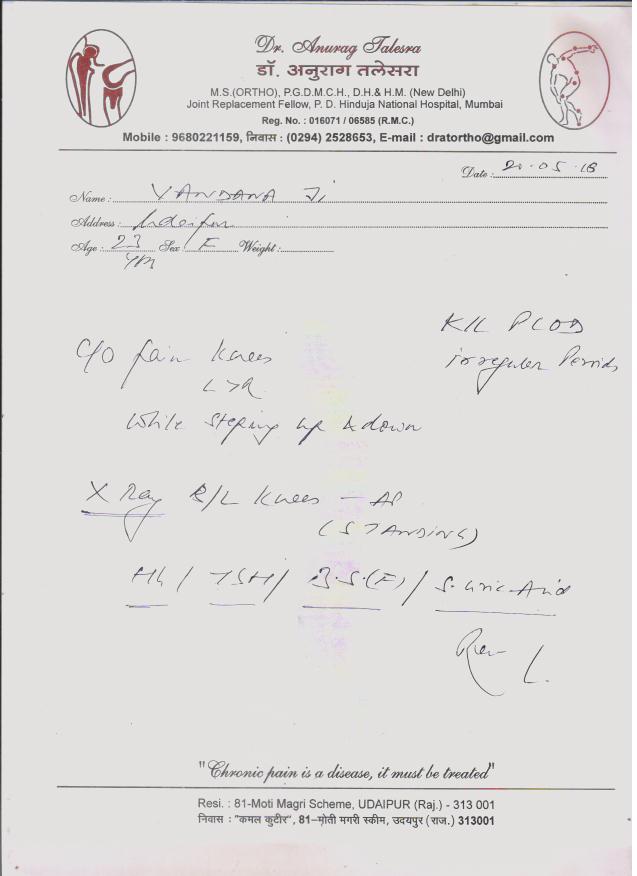 Dr. Anurag Talesra
डॉ. अनुराग तलेसरा
M.S.(ORTHO), P.G.D.M.C.H., D.H.& H.M. (New Delhi)
Joint Replacement Fellow, P. D. Hinduja National Hospital, Mumbai
Reg. No. : 016071 / 06585 (R.M.C.)
Mobile : 9680221159, निवास : (0294) 2528653, E-mail : dratortho@gmail.com
Date : 20.05.18
Name : VANDANA Ji
Address : Udaipur
Age : 23 Sex : F Weight :
K/C PCOD
irregular Periods
C/O pain knees
L > R
while steping up & down
X Ray B/L Knees - AP
(STANDING)
Hb / TSH / B.S.(F) / S. Uric Acid
"Chronic pain is a disease, it must be treated"
Resi. : 81-Moti Magri Scheme, UDAIPUR (Raj.) - 313 001
निवास : "कमल कुटीर", 81-मोती मगरी स्कीम, उदयपुर (राज.) 313001